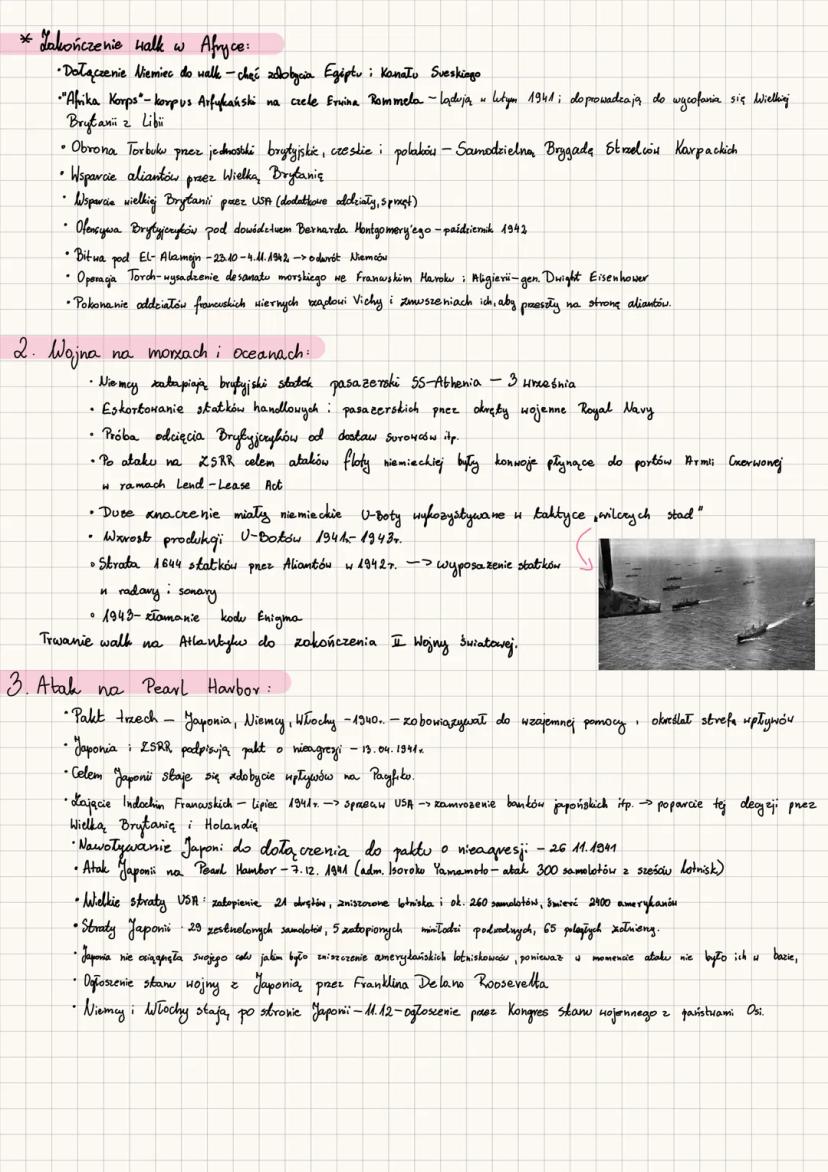 * Zakończenie walk w Afryce:
• Dołączenie Niemiec do walk – chęć zdobycia Egiptu i Kanału Sueskiego
• "Afrika Korps" – korpus Arfykański na czele Erwina Rommela – lądują w lutym 1941 i doprowadzają do wycofania się Wielkiej
Brytanii z Libii
• Obrona Torbuku przez jednostki brytyjskie, czeskie i polaków – Samodzielną Brygadę Strzelców Karpackich
• Wsparcie aliantów przez Wielką Brytanię
• Wsparcie wielkiej Brytanii przez USA (dodatkowe oddziały, sprzęt)
• Ofensywa Brytyjczyków pod dowództwem Bernarda Montgomery'ego – październik 1942
• Bitwa pod El-Alamejn – 23.10 – 4.11.1942 –> odwrót Niemców
• Operacja Torch – wysadzenie desantu morskiego we Francuskim Maroku i Algierii – gen. Dwight Eisenhower
• Pokonanie oddziałów francuskich wiernych rządowi Vichy i zmuszeniach ich, aby przeszły na stronę aliantów.
2. Wojna na morzach i oceanach:
• Niemcy zatapiają brytyjski statek pasażerski SS-Athenia – 3 września
• Eskortowanie statków handlowych i pasażerskich przez okręty wojenne Royal Navy
• Próba odcięcia Brytyjczyków od dostaw surowców itp.
• Po ataku na ZSRR celem ataków floty niemieckiej były konwoje płynące do portów Armii Czerwonej
w ramach Lend-Lease Act
• Duże znaczenie miały niemieckie U-Boty wykozystywane w taktyce „wilczych stad"
• Wzrost produkcji U-Botów 1941r. – 1943r.
• Strata 1644 statków przez Aliantów w 1942r. –> wyposażenie statków
w radary i sonary
• 1943 – złamanie kodu Enigma
Trwanie walk na Atlantyku do zakończenia II Wojny Światowej.
3. Atak na Pearl Harbor:
• Pakt trzech – Japonia, Niemcy, Włochy – 1940r. – zobowiązywał do wzajemnej pomocy i określał strefę wpływów
• Japonia i ZSRR podpisują pakt o nieagresji – 13.04.1941r.
• Celem Japonii staje się zdobycie wpływów na Pacyfiku.
• Zajęcie Indochin Francuskich – lipiec 1941r. –> sprzeciw USA –> zamrożenie banków japońskich itp. –> poparcie tej decyzji przez
Wielką Brytanię i Holandię
• Nawoływanie Japoni do dołączenia do paktu o nieagresji – 26.11.1941
• Atak Japonii na Pearl Harbor – 7.12.1941 (adm. Isoroko Yamamoto – atak 300 samolotów z sześciu lotnisk)
• Wielkie straty USA: zatopienie 21 okrętów, zniszczone lotniska i ok. 260 samolotów, śmierć 2400 amerykanów
• Straty Japonii: 29 zestrzelonych samolotów, 5 zatopionych miniłodzi podwodnych, 65 poległych żołnierzy.
• Japonia nie osiągnęła swojego celu jakim było zniszczenie amerykańskich lotniskowców, ponieważ w momencie ataku nie było ich w bazie,
• Ogłoszenie stanu wojny z Japonią przez Franklina Delano Roosevelta
• Niemcy i Włochy stają po stronie Japonii – 11.12 – ogłoszenie przez Kongres stanu wojennego z państwami Osi.